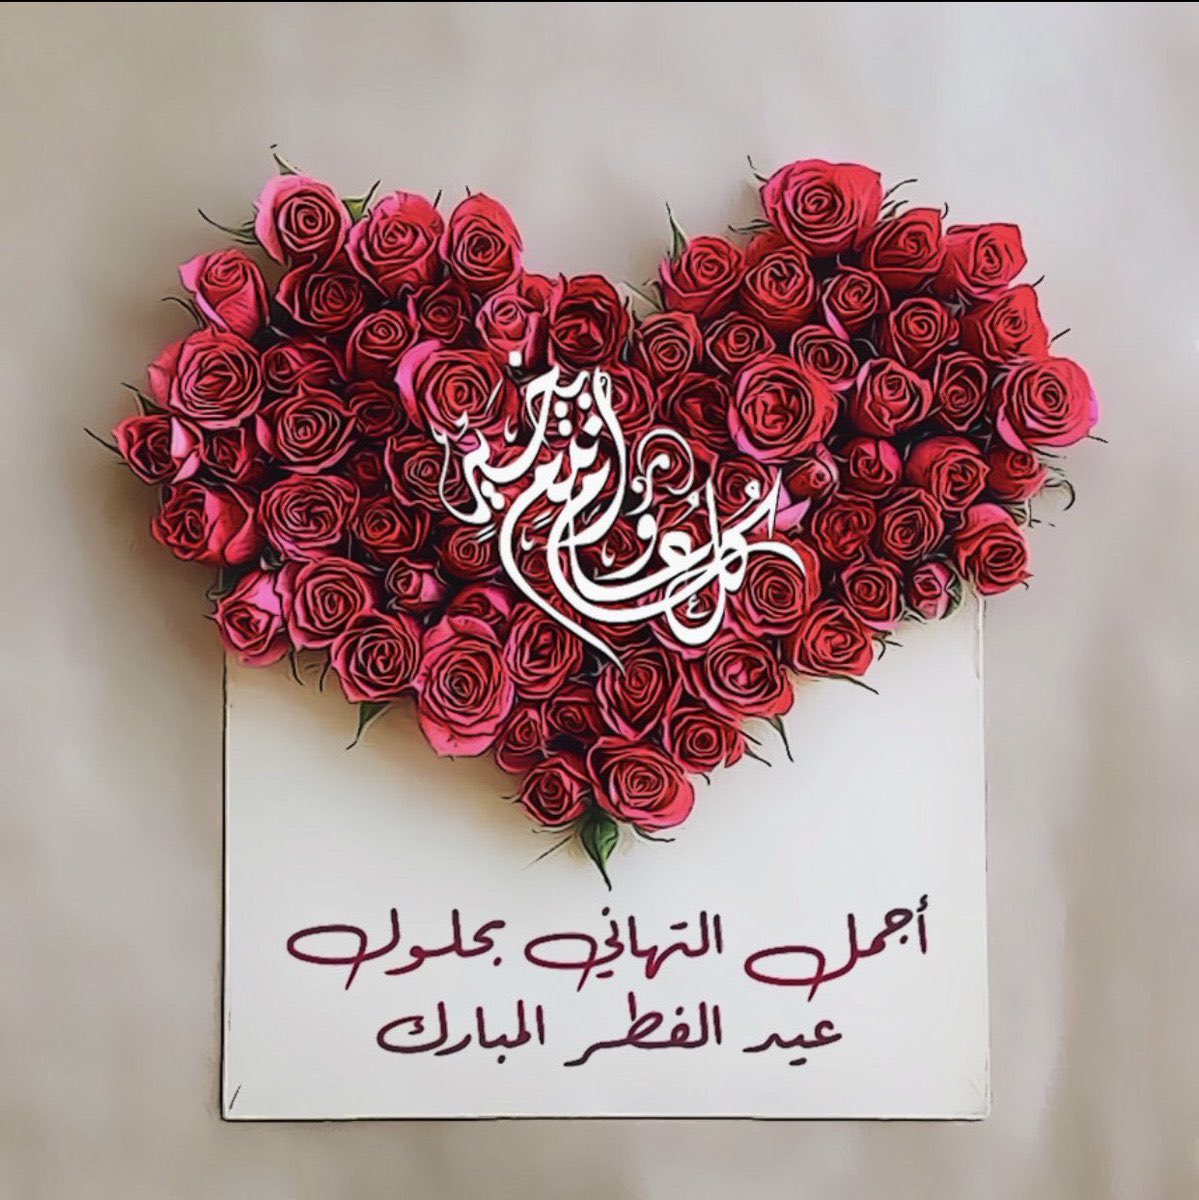 كُل عَام وَأنتُم بِخَير
أجمل التهاني بحلول
عيد الفطر المبارك